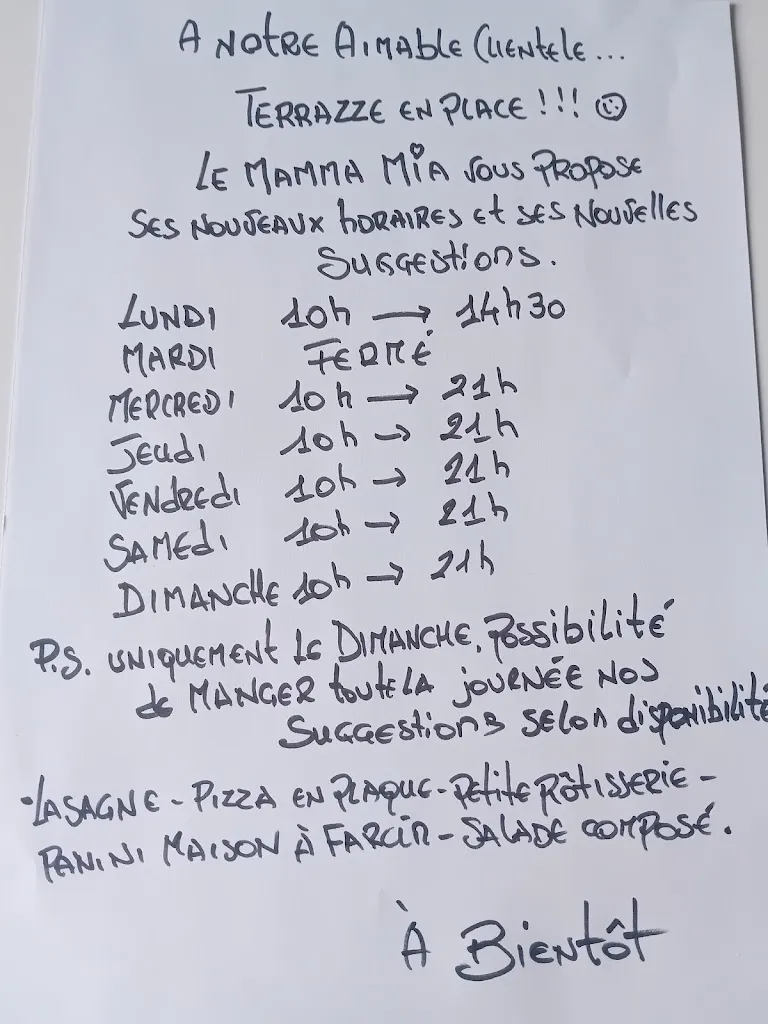 A NOTRE AIMABLE CLIENTELE...
TERRAZZE EN PLACE !!! ☺
LE MAMMA MIA VOUS PROPOSE
SES NOUVEAUX hORAIRES Et SES NOUVEllES
SUGGEStiONS.
LUNDI 10h → 14h30
MARDI FERMÉ
MERCREDI 10h → 21h
JEUdi 10h → 21h
VENdREdi 10h → 21h
SAMEdi 10h → 21h
DIMANCHE 10h → 21h
P.S. UNIQUEMENt LE DIMANCHE, POSSibilité
de MANGER toutE LA JOURNÉE NOS
SUGGEStiONS SElON dispONibilité
•LASAGNE - PIZZA EN PLAQUE - PEtitE RÔtiSSERIE -
PANINI MAISON À FARCIR - SALADE COMPOSÉ.
À BiENtÔt